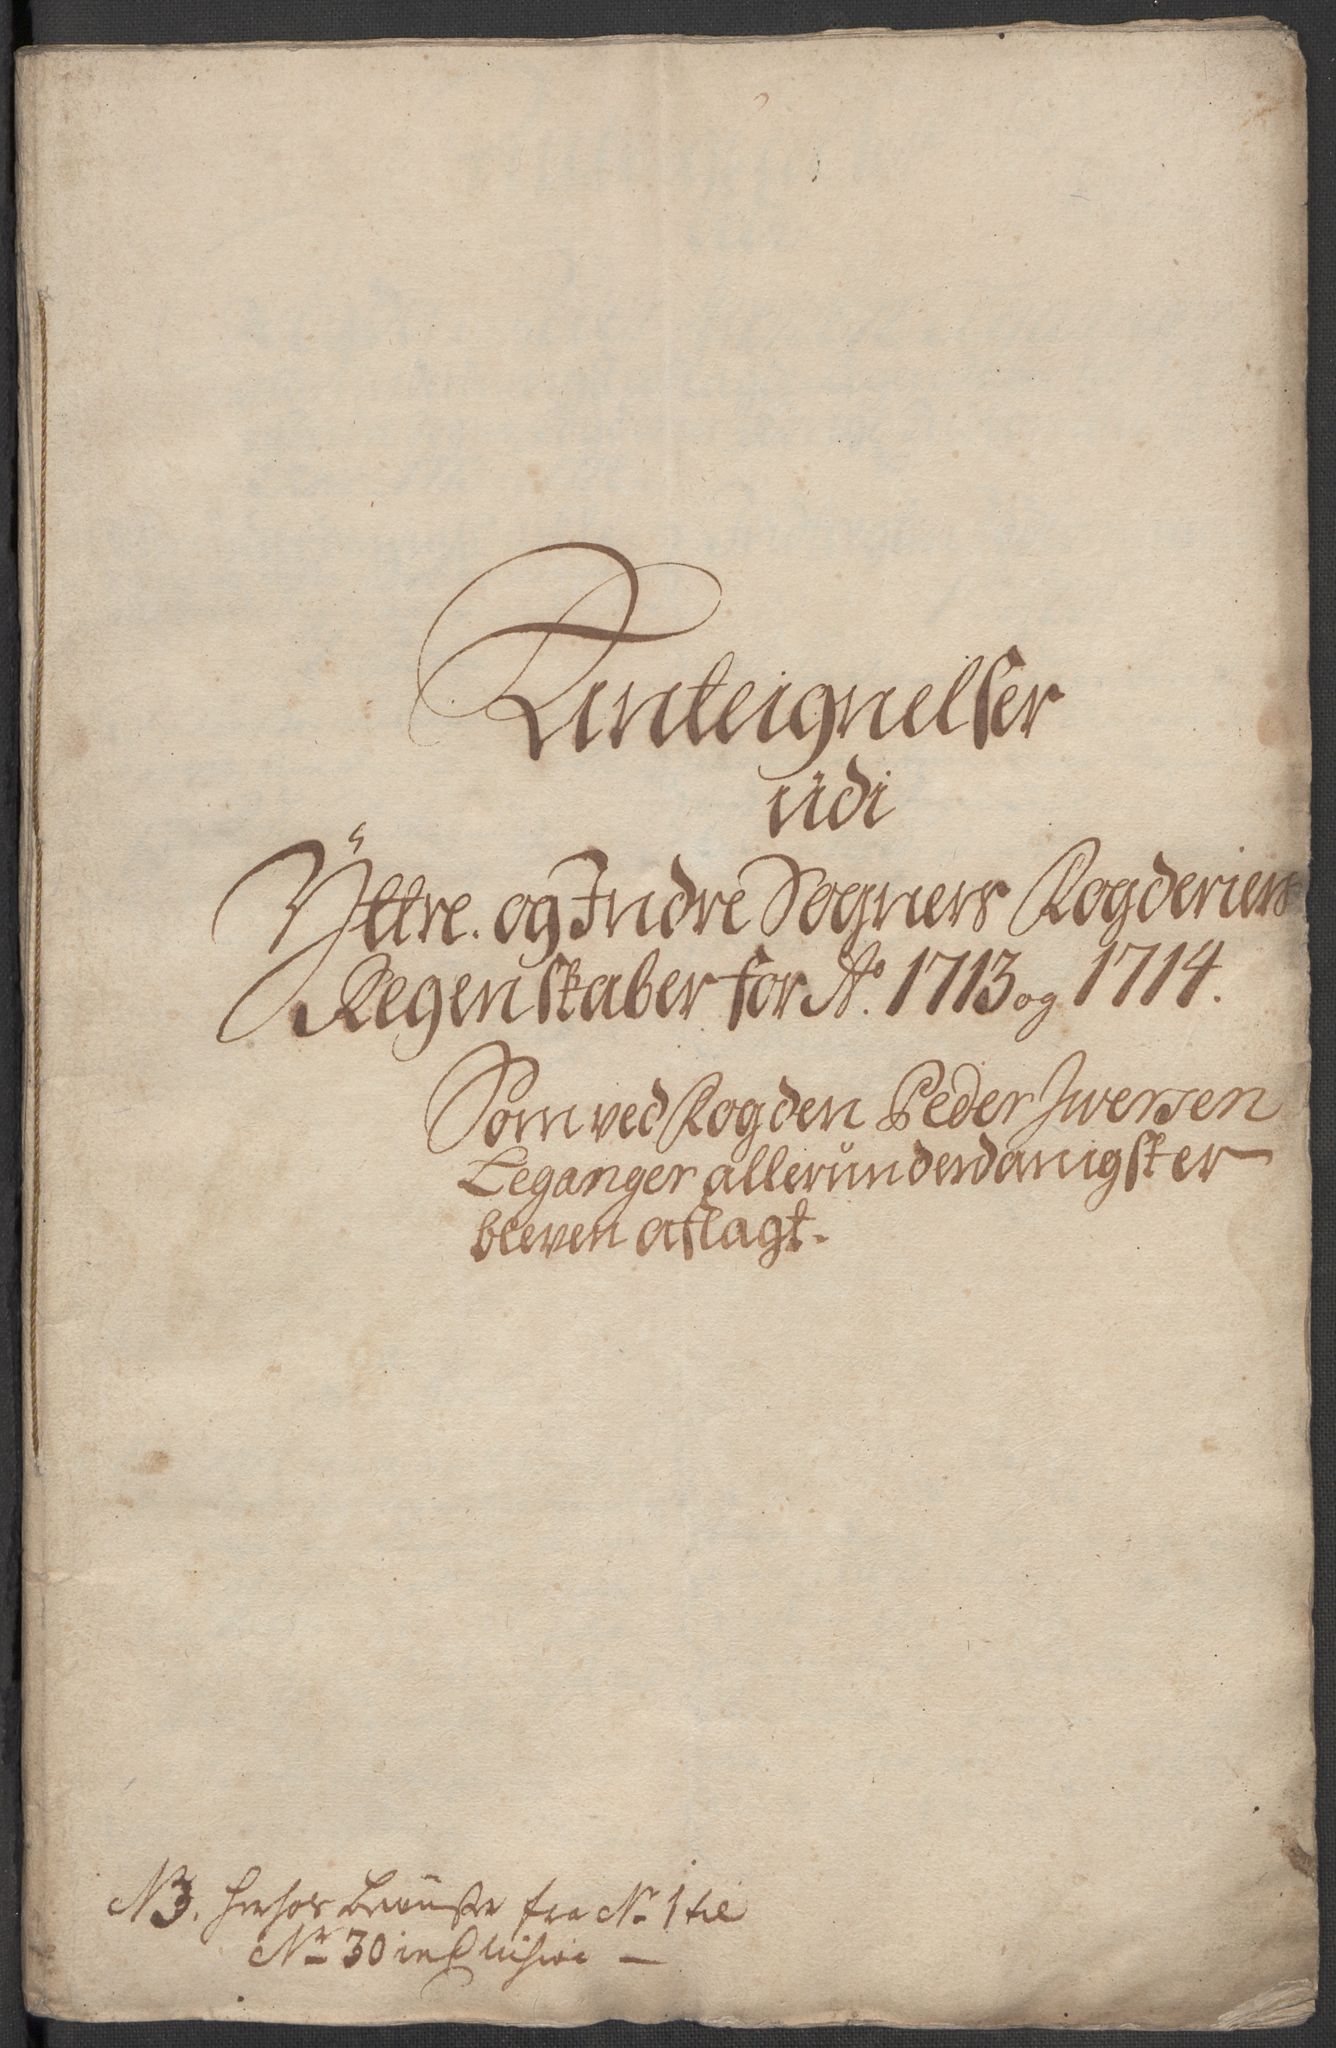 Anteignelser
üdi
Ÿttre. og Indre Sogners Fogderiers
Regenskaber for Ao. 1713 og 1714.
Som ved Fogden Peder Iwersen
Leganger alleründerdanigst er
bleven aflagt.
NB. herhos bewiiser fra No 1 til
No 30 inclusive —